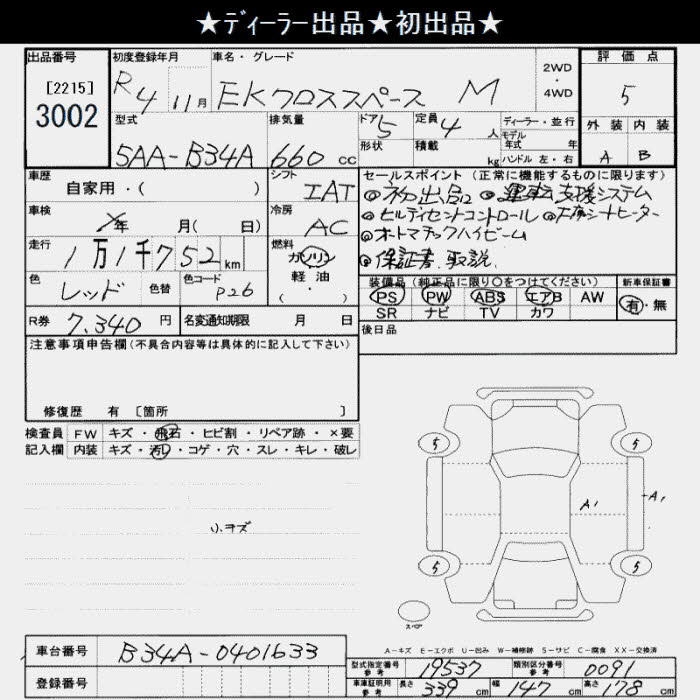 ★ディーラー出品★初出品★
出品番号 初度登録年月 車名・グレード 2WD・4WD 評価点
[2215] R4 11月 EKクロススペース M 5
3002
型式 排気量 ドア 5 定員 4人 ディーラー・並行 外装 内装
5AA-B34A 660 cc 形状 積載 kg モデル年式 年 A B
ハンドル 左・右
車歴 シフト セールスポイント (正常に機能するものに限ります)
自家用・( ) IAT ◎初出品 ◎運転支援システム
車検 年 月( 日) 冷房 AC ◎ヒルディセントコントロール ◎F席シートヒーター
走行 1万1千752km 燃料 ガソリン ◎オートマチックハイビーム
色 レッド 色替 色コード P26 軽油 ( ・ ) ◎保証書、取説
装備品 (純正品に限り○をつけてください) 新車保証書
PS PW ABS エアB AW 有・無
SR ナビ TV カワ
R券 7,340円 名変通知期限 月 日 後日品
注意事項申告欄 (不具合内容等は具体的に記入して下さい)
修復歴 有 [箇所 ]
検査員 FW キズ・飛石・ヒビ割・リペア跡・×要
記入欄 内装 キズ・汚レ・コゲ・穴・スレ・キレ・破レ
小キズ
5 5
A1 A1
5 5
スペア
A-キズ E-エクボ U-凹み W-補修跡 S-サビ C-腐食 XX-交換済
車台番号 B34A-0401633
登録番号
型式指定番号 参考 19537 類別区分番号 参考 0091
車庫証明用 参考 長さ 339 cm 幅 147 cm 高さ 178 cm